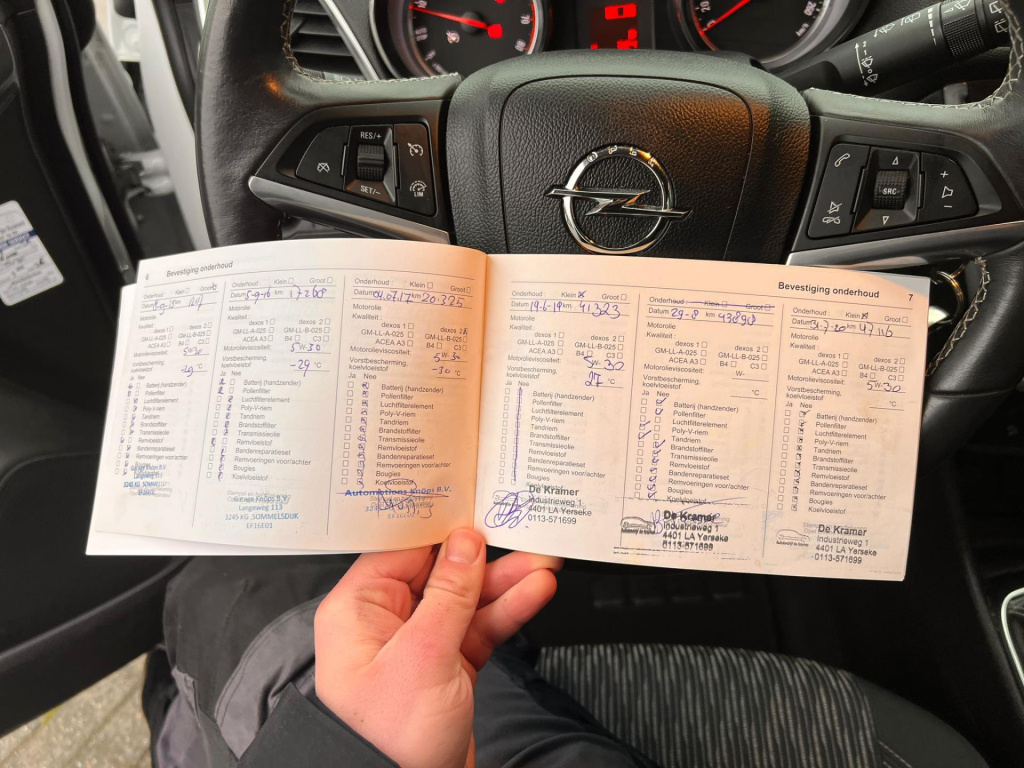 RES/+
SET/-
LIM
OPEL
SRC
6 Bevestiging onderhoud
Onderhoud: Klein Groot
Datum km
Motorolie
Kwaliteit:
dexos 1 dexos 2
GM-LL-A-025 GM-LL-B-025
ACEA A3 B4 C3
Motorolieviscositeit:
5W30
Vorstbescherming,
koelvloeistof -29 °C
Ja Nee
Batterij (handzender)
Pollenfilter
Luchtfilterelement
Poly-V-riem
Tandriem
Brandstoffilter
Transmissieolie
Remvloeistof
Bandenreparatieset
Remvoeringen voor/achter
Bougies
Koelvloeistof
Langeweg 113
3245 KG SOMMELSDIJK
Onderhoud: Klein Groot
Datum 5-9-16 km 17268
dexos 1 dexos 2
GM-LL-A-025 GM-LL-B-025
ACEA A3 B4 C3
5W-30
-29 °C
Batterij (handzender)
Pollenfilter
Luchtfilterelement
Poly-V-riem
Tandriem
Brandstoffilter
Transmissieolie
Remvloeistof
Bandenreparatieset
Remvoeringen voor/achter
Bougies
Garage Knöps B.V.
Langeweg 113
3245 KG SOMMELSDIJK
Onderhoud: Klein Groot
Datum 04.07.17 km 20.325
Motorolie
Kwaliteit:
dexos 1 dexos 2
GM-LL-A-025 GM-LL-B-025
ACEA A3 B4 C3
Motorolieviscositeit:
5W-30
Vorstbescherming,
koelvloeistof -30 °C
Ja Nee
Batterij (handzender)
Pollenfilter
Luchtfilterelement
Poly-V-riem
Tandriem
Brandstoffilter
Transmissieolie
Remvloeistof
Bandenreparatieset
Remvoeringen voor/achter
Bougies
Koelvloeistof
Bevestiging onderhoud 7
Onderhoud: Klein Groot
Datum 19-6-19 km 41323
Motorolie
Kwaliteit:
dexos 1 dexos 2
GM-LL-A-025 GM-LL-B-025
ACEA A3 B4 C3
Motorolieviscositeit:
5W30
Vorstbescherming,
koelvloeistof 27 °C
Ja Nee
Batterij (handzender)
Pollenfilter
Luchtfilterelement
Poly-V-riem
Tandriem
Brandstoffilter
Transmissieolie
Remvloeistof
Bandenreparatieset
Remvoeringen voor/achter
Bougies
Koelvloeistof
De Kramer
Industrieweg 1
4401 LA Yerseke
0113-571699
Onderhoud: Klein Groot
Datum 29-8 km 43898
Motorolie
Kwaliteit:
dexos 1 dexos 2
GM-LL-A-025 GM-LL-B-025
ACEA A3 B4 C3
Motorolieviscositeit:
W-
Vorstbescherming,
koelvloeistof °C
Ja Nee
Batterij (handzender)
Pollenfilter
Luchtfilterelement
Poly-V-riem
Tandriem
Brandstoffilter
Transmissieolie
Remvloeistof
Bandenreparatieset
Remvoeringen voor/achter
Bougies
Koelvloeistof
De Kramer
Industrieweg 1
4401 LA Yerseke
0113-571699
Onderhoud: Klein Groot
Datum 31-3-20 km 47116
Motorolie
Kwaliteit:
dexos 1 dexos 2
GM-LL-A-025 GM-LL-B-025
ACEA A3 B4 C3
Motorolieviscositeit:
5W-30
Vorstbescherming,
koelvloeistof °C
Ja Nee
Batterij (handzender)
Pollenfilter
Luchtfilterelement
Poly-V-riem
Tandriem
Brandstoffilter
Transmissieolie
Remvloeistof
Bandenreparatieset
Remvoeringen voor/achter
Bougies
Koelvloeistof
De Kramer
Industrieweg 1
4401 LA Yerseke
0113-571699